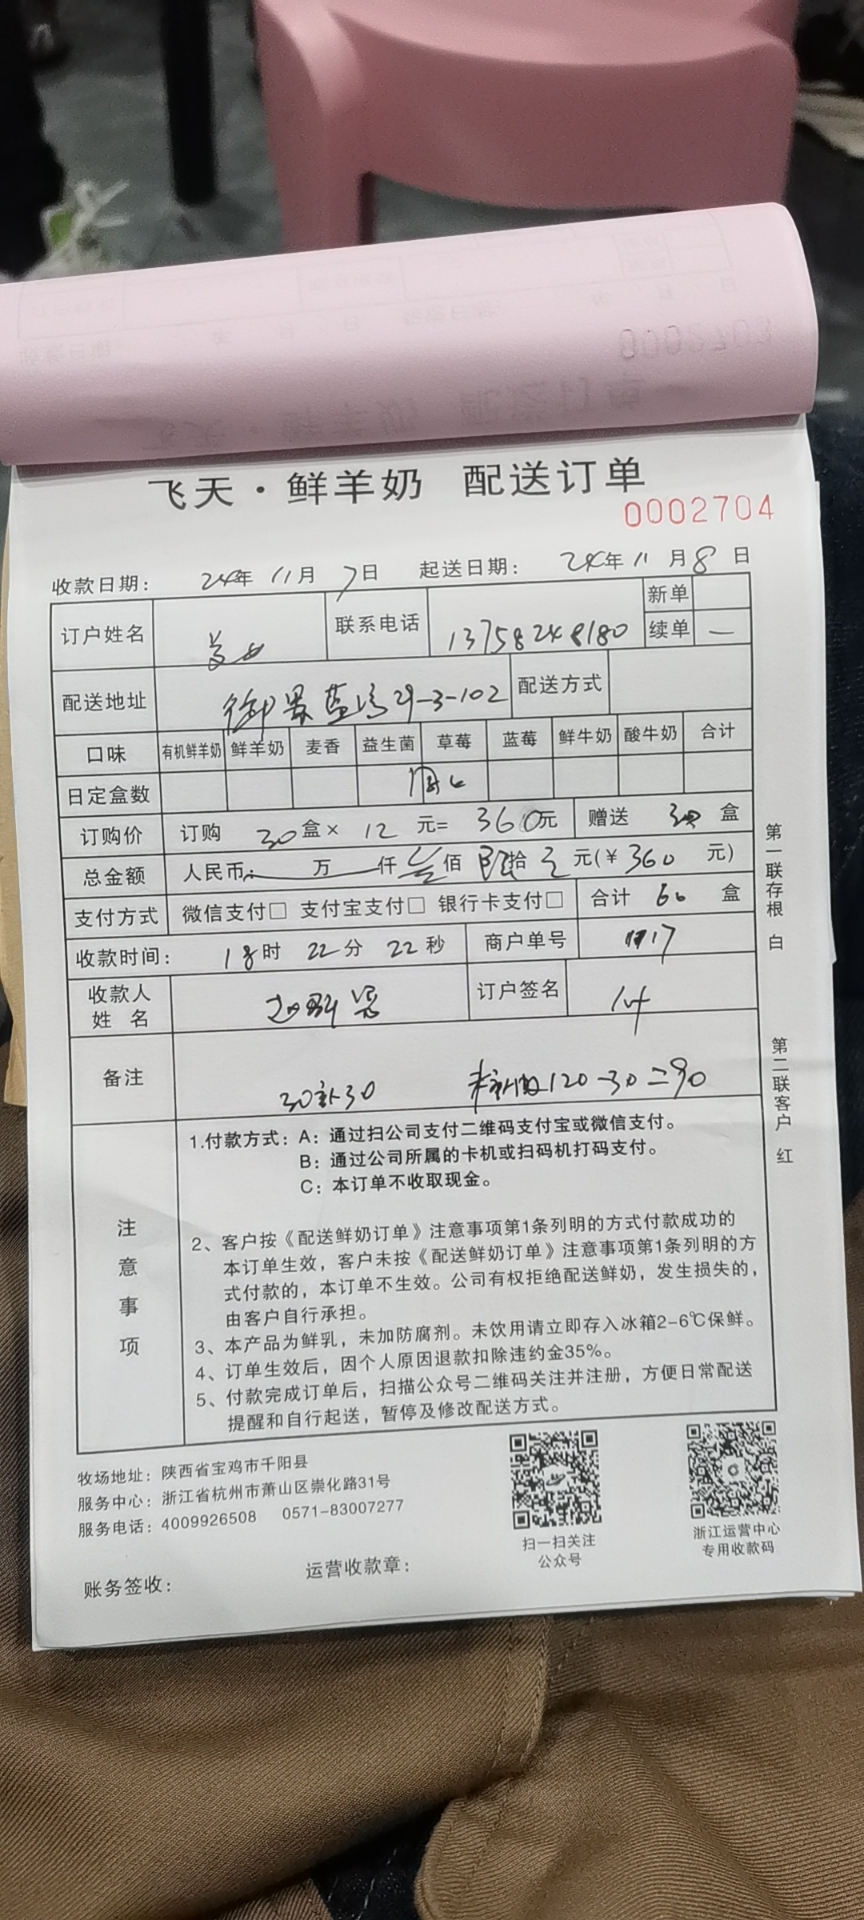 飞天·鲜羊奶 配送订单
0002704
收款日期： 24年 11月 7日 起送日期： 24年 11月 8日
订户姓名 联系电话 13758248180 新单
续单 —
配送地址 御景蓝湾29-3-102 配送方式
口味 有机鲜羊奶 鲜羊奶 麦香 益生菌 草莓 蓝莓 鲜牛奶 酸牛奶 合计
日定盒数
订购价 订购 30盒× 12 元= 360元 赠送 30 盒
总金额 人民币 万 仟 叁佰 陆拾 元(￥360 元)
支付方式 微信支付□ 支付宝支付□ 银行卡支付□ 合计 60 盒
收款时间： 18时 22分 22秒 商户单号 1717
收款人
姓 名 订户签名
备注 30 30 120-30=90
注意事项
1.付款方式：A：通过扫公司支付二维码支付宝或微信支付。
B：通过公司所属的卡机或扫码机打码支付。
C：本订单不收取现金。
2、客户按《配送鲜奶订单》注意事项第1条列明的方式付款成功的
本订单生效，客户未按《配送鲜奶订单》注意事项第1条列明的方
式付款的，本订单不生效。公司有权拒绝配送鲜奶，发生损失的，
由客户自行承担。
3、本产品为鲜乳，未加防腐剂。未饮用请立即存入冰箱2-6℃保鲜。
4、订单生效后，因个人原因退款扣除违约金35%。
5、付款完成订单后，扫描公众号二维码关注并注册，方便日常配送
提醒和自行起送，暂停及修改配送方式。
第一联存根 白
第二联客户 红
牧场地址：陕西省宝鸡市千阳县
服务中心：浙江省杭州市萧山区崇化路31号
服务电话：4009926508 0571-83007277
扫一扫关注
公众号
浙江运营中心
专用收款码
账务签收： 运营收款章：